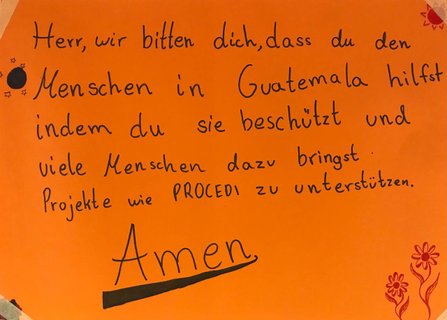 Herr, wir bitten dich, dass du den
Menschen in Guatemala hilfst
indem du sie beschützt und
viele Menschen dazu bringst
Projekte wie PROCEDI zu unterstützen.
Amen